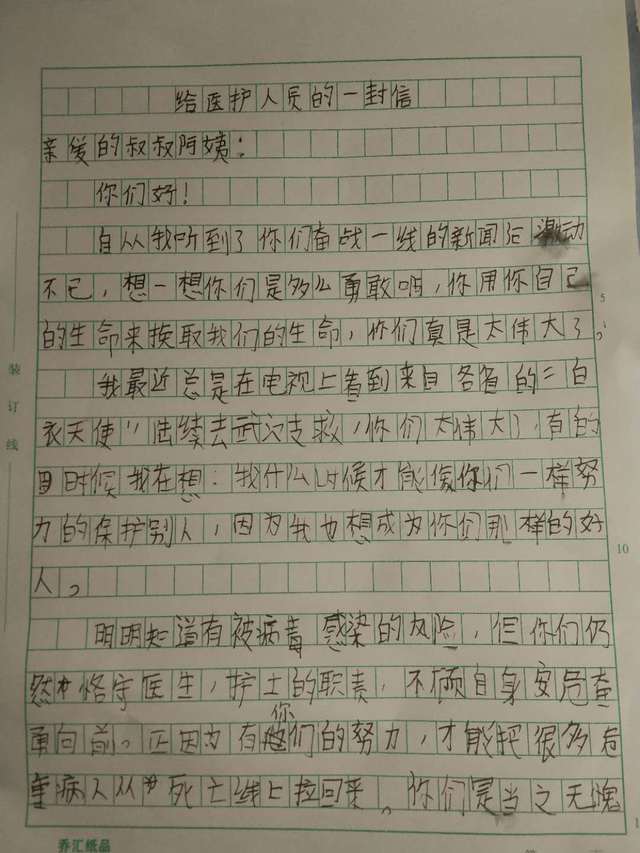 给医护人员的一封信
亲爱的叔叔阿姨：
你们好！
自从我听到了你们奋战一线的新闻后激动
不已，想一想你们是多么勇敢啊，你用你自己
的生命来换取我们的生命，你们真是太伟大了。
5
我最近总是在电视上看到来自各省的"白
衣天使"陆续去武汉支救，你们太伟大了，有的
时候我在想：我什么时候才能像你们一样努
力的保护别人，因为我也想成为你们那样的好
10
人。
明明知道有被病毒感染的风险，但你们仍
然恪守医生，护士的职责，不顾自身安危奋
勇向前。正因为有你们的努力，才能把很多危
重病人从死亡线上拉回来。你们是当之无愧
装订线
乔汇纸品